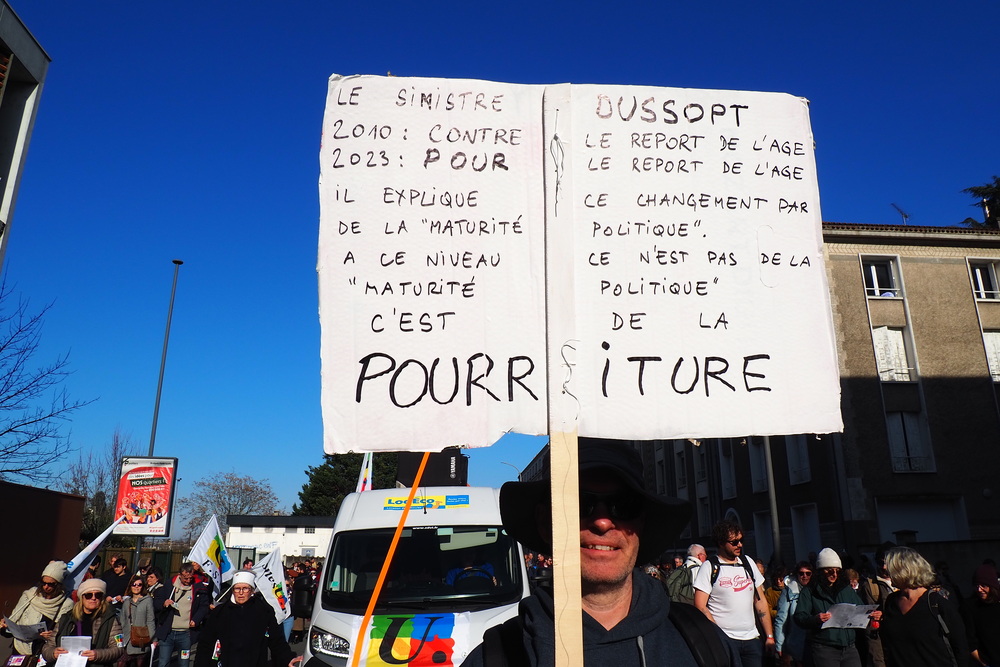 LE SINISTRE DUSSOPT
2010 : CONTRE LE REPORT DE L'AGE
2023 : POUR LE REPORT DE L'AGE
iL EXPLiQUE CE CHANGEMENT PAR
DE LA "MATURITÉ POLITIQUE".
A CE NIVEAU CE N'EST PAS DE LA
"MATURITÉ POLITIQUE"
C'EST DE LA
POURRiTURE
YAMAHA
LocEco
NOS quartiers
U.